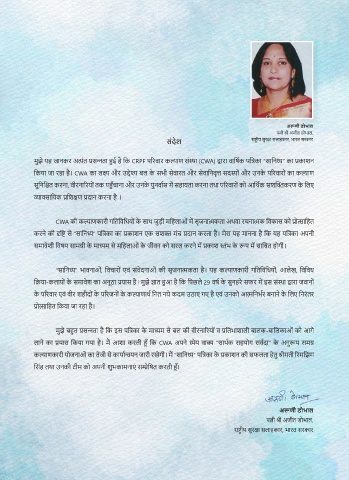 अरूणी डोभाल
पत्नी श्री अजीत डोभाल,
राष्ट्रीय सुरक्षा सलाहकार, भारत सरकार
संदेश
मुझे यह जानकर अत्यंत प्रसन्नता हुई है कि CRPF परिवार कल्याण संस्था (CWA) द्वारा वार्षिक पत्रिका "सानिध्य" का प्रकाशन
किया जा रहा है। CWA का लक्ष्य और उद्देश्य बल के सभी सेवारत और सेवानिवृत्त सदस्यों और उनके परिवारों का कल्याण
सुनिश्चित करना, वीरनारियों तक पहुँचाना और उनके पुनर्वास में सहायता करना तथा परिवारों को आर्थिक सशक्तिकरण के लिए
व्यावसायिक प्रशिक्षण प्रदान करना है ।
CWA की कल्याणकारी गतिविधियों के साथ जुड़ी महिलाओं में सृजनात्मकता अथवा रचनात्मक विकास को प्रोत्साहित
करने की दृष्टि से "सानिध्य" पत्रिका का प्रकाशन एक सशक्त मंच प्रदान करता है। मेरा यह मानना है कि यह पत्रिका अपनी
समावेशी विषय सामग्री के माध्यम से महिलाओं के जीवन को सरल करने में प्रकाश स्तंभ के रूप में साबित होगी।
"सानिध्य" भावनाओं, विचारों एवं संवेदनाओं की सृजनात्मकता है। यह कल्याणकारी गतिविधियों, आलेख, विविध
क्रिया-कलापों के समावेश का अनूठा प्रयास है। मुझे ज्ञात हुआ है कि पिछले 29 वर्ष के सुनहरे सफर में इस संस्था द्वारा जवानों
के परिवार एवं वीर शहीदों के परिजनों के कल्याणार्थ नित नये कदम उठाए गए है एवं उनको आत्मनिर्भर बनाने के लिए निरंतर
प्रोत्साहित किया जा रहा है।
मुझे बहुत प्रसन्नता है कि इस पत्रिका के माध्यम से बल की वीरनारियों व प्रतिभाशाली बालक-बालिकाओं को आगे
लाने का प्रयास किया गया है। मैं आशा करती हूँ कि CWA अपने ध्येय वाक्य "सार्थक सहयोग सर्वदा" के अनुरूप समग्र
कल्याणकारी योजनाओं का तेजी से कार्यान्वयन जारी रखेगी। मैं "सानिध्य" पत्रिका के प्रकाशन की सफलता हेतु श्रीमती रिमझिम
सिंह तथा उनकी टीम को अपनी शुभकामनाएं सम्प्रेषित करती हूँ।
अरूणी डोभाल
अरूणी डोभाल
पत्नी श्री अजीत डोभाल,
राष्ट्रीय सुरक्षा सलाहकार, भारत सरकार